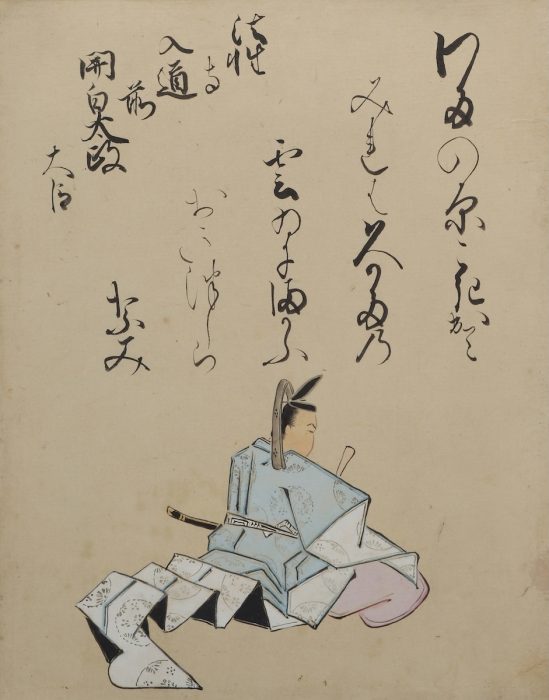 わたの原こき出て
みれは久かたの
雲ゐにまかふ
おきつしら
なみ
法性
寺
入道
前
関白太政
大臣